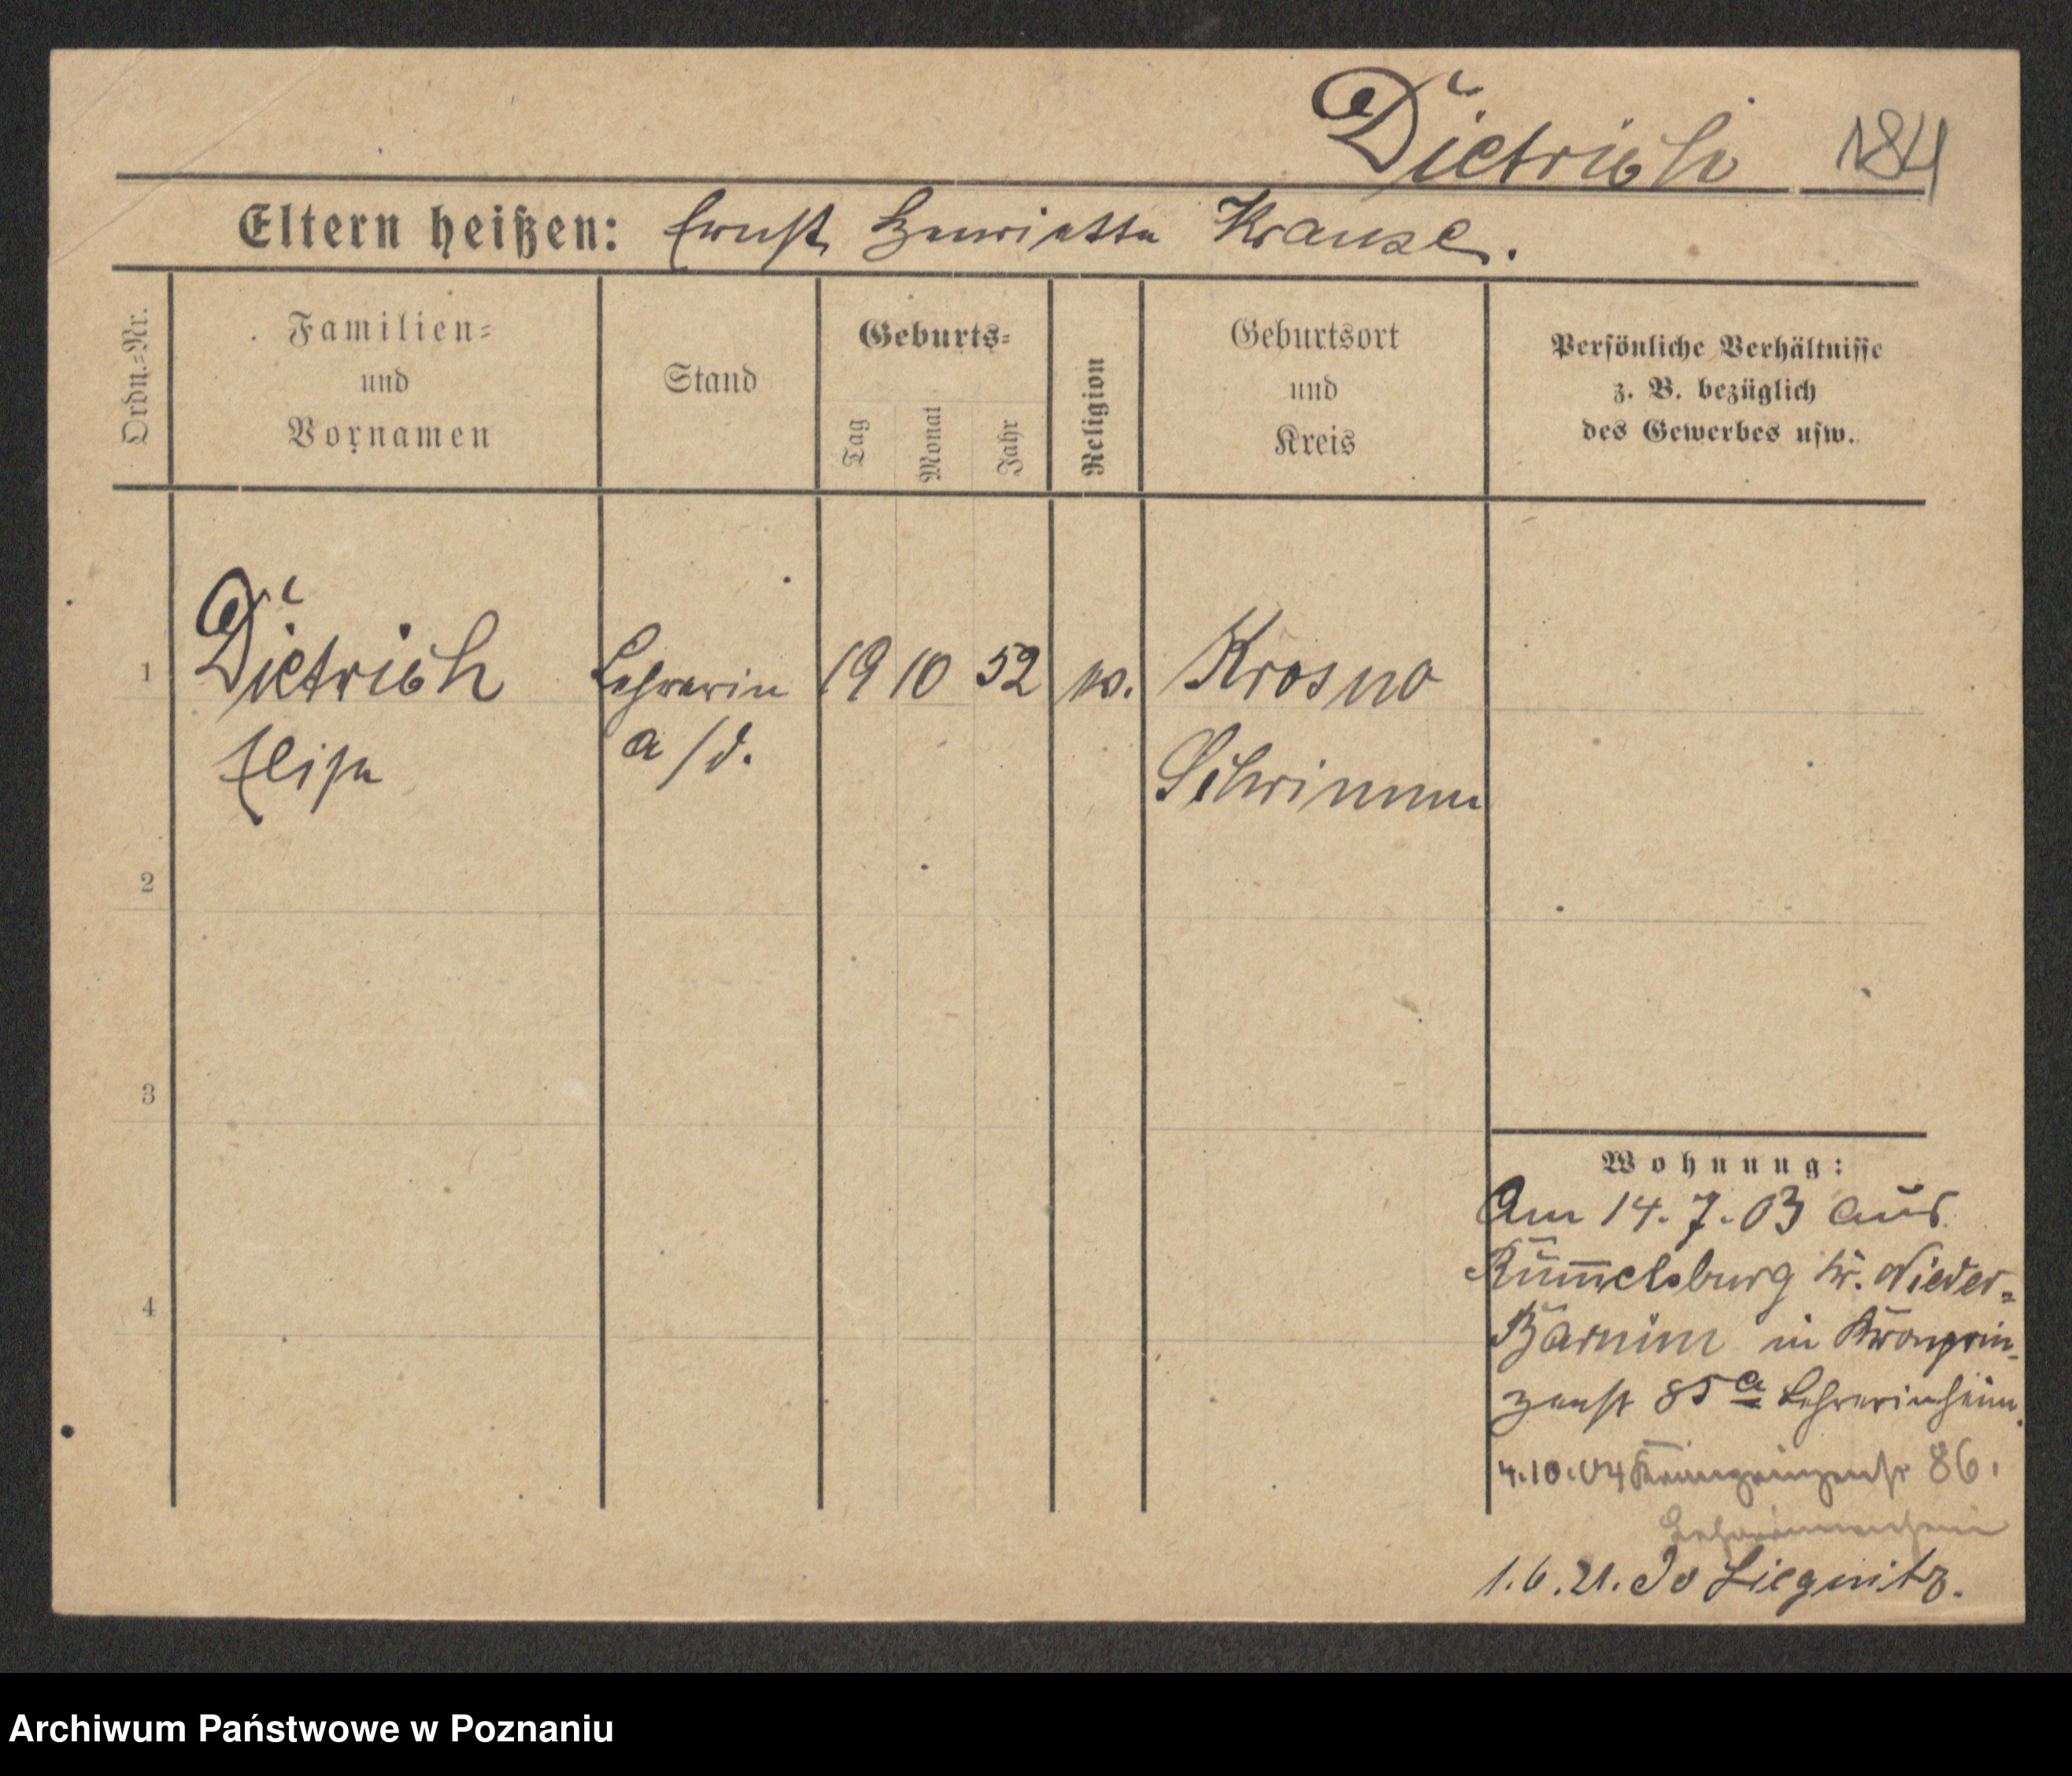 Dietrich 184
Eltern heißen: Ernst Henriette Krause.
Ordn.=Nr.
Familien=
und
Vornamen
Stand
Geburts=
Tag
Monat
Jahr
Religion
Geburtsort
und
Kreis
Persönliche Verhältnisse
z. B. bezüglich
des Gewerbes usw.
1 Dietrich Lehrerin 19 10 52 Krosno
Elise a/d. Schrimm
2
3
4
Wohnung:
Am 14. 7. 03 aus
Rummelsburg Kr. Nieder=
Barnim in Kronprin-
zenst 85a Lehrerinheim.
4.10.04 Kronprinzenstr 86.
Lehrerinnenheim
1.6.21. Liegnitz.
Archiwum Państwowe w Poznaniu